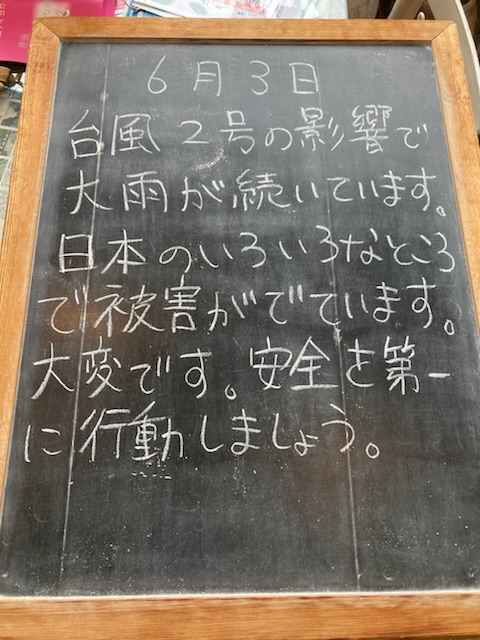 6月3日
台風2号の影響で
大雨が続いています。
日本のいろいろなところ
で被害がでています。
大変です。安全を第一
に行動しましょう。